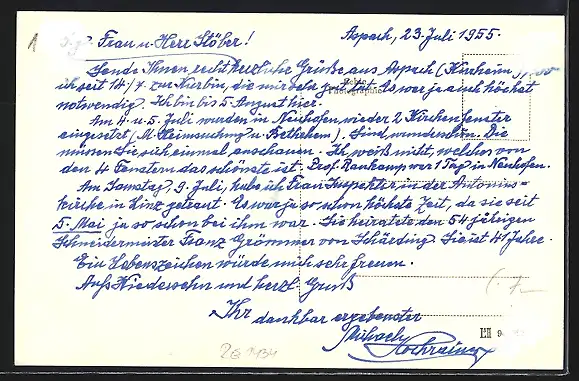 Frau u. Herr Stöber! Aspach, 23. Juli 1955.
Sende Ihnen recht herzliche Grüße aus Aspach
ich seit 14./7. zur Kur bin, die mir sehr gut tut. Es war ja auch höchst
notwendig. Ich bin bis 5. August hier.
Am 4. u. 5. Juli wurden in Neuhofen wieder 2 Kirchenfenster
eingesetzt (M. Heimsuchung u. Bethlehem). Sind wunderschön. Die
müssen Sie sich einmal anschauen. Ich weiß nicht, welches von
den 4 Fenstern das schönste ist. Prof. war 1 Tag in Neuhofen.
Am Samstag, 9. Juli, habe ich Frau Inspektor in der Antonius=
kirche in Linz getraut. Es war ja schon höchste Zeit, da sie seit
5. Mai ja so schon bei ihm war. Sie heiratete den 54 jährigen
Schneidermeister Franz Grömmer von Schärding. Sie ist 41 Jahre.
Ein Lebenszeichen würde mich sehr freuen.
Aufs Wiedersehn und herzl. Gruß
Ihr dankbar ergebenster